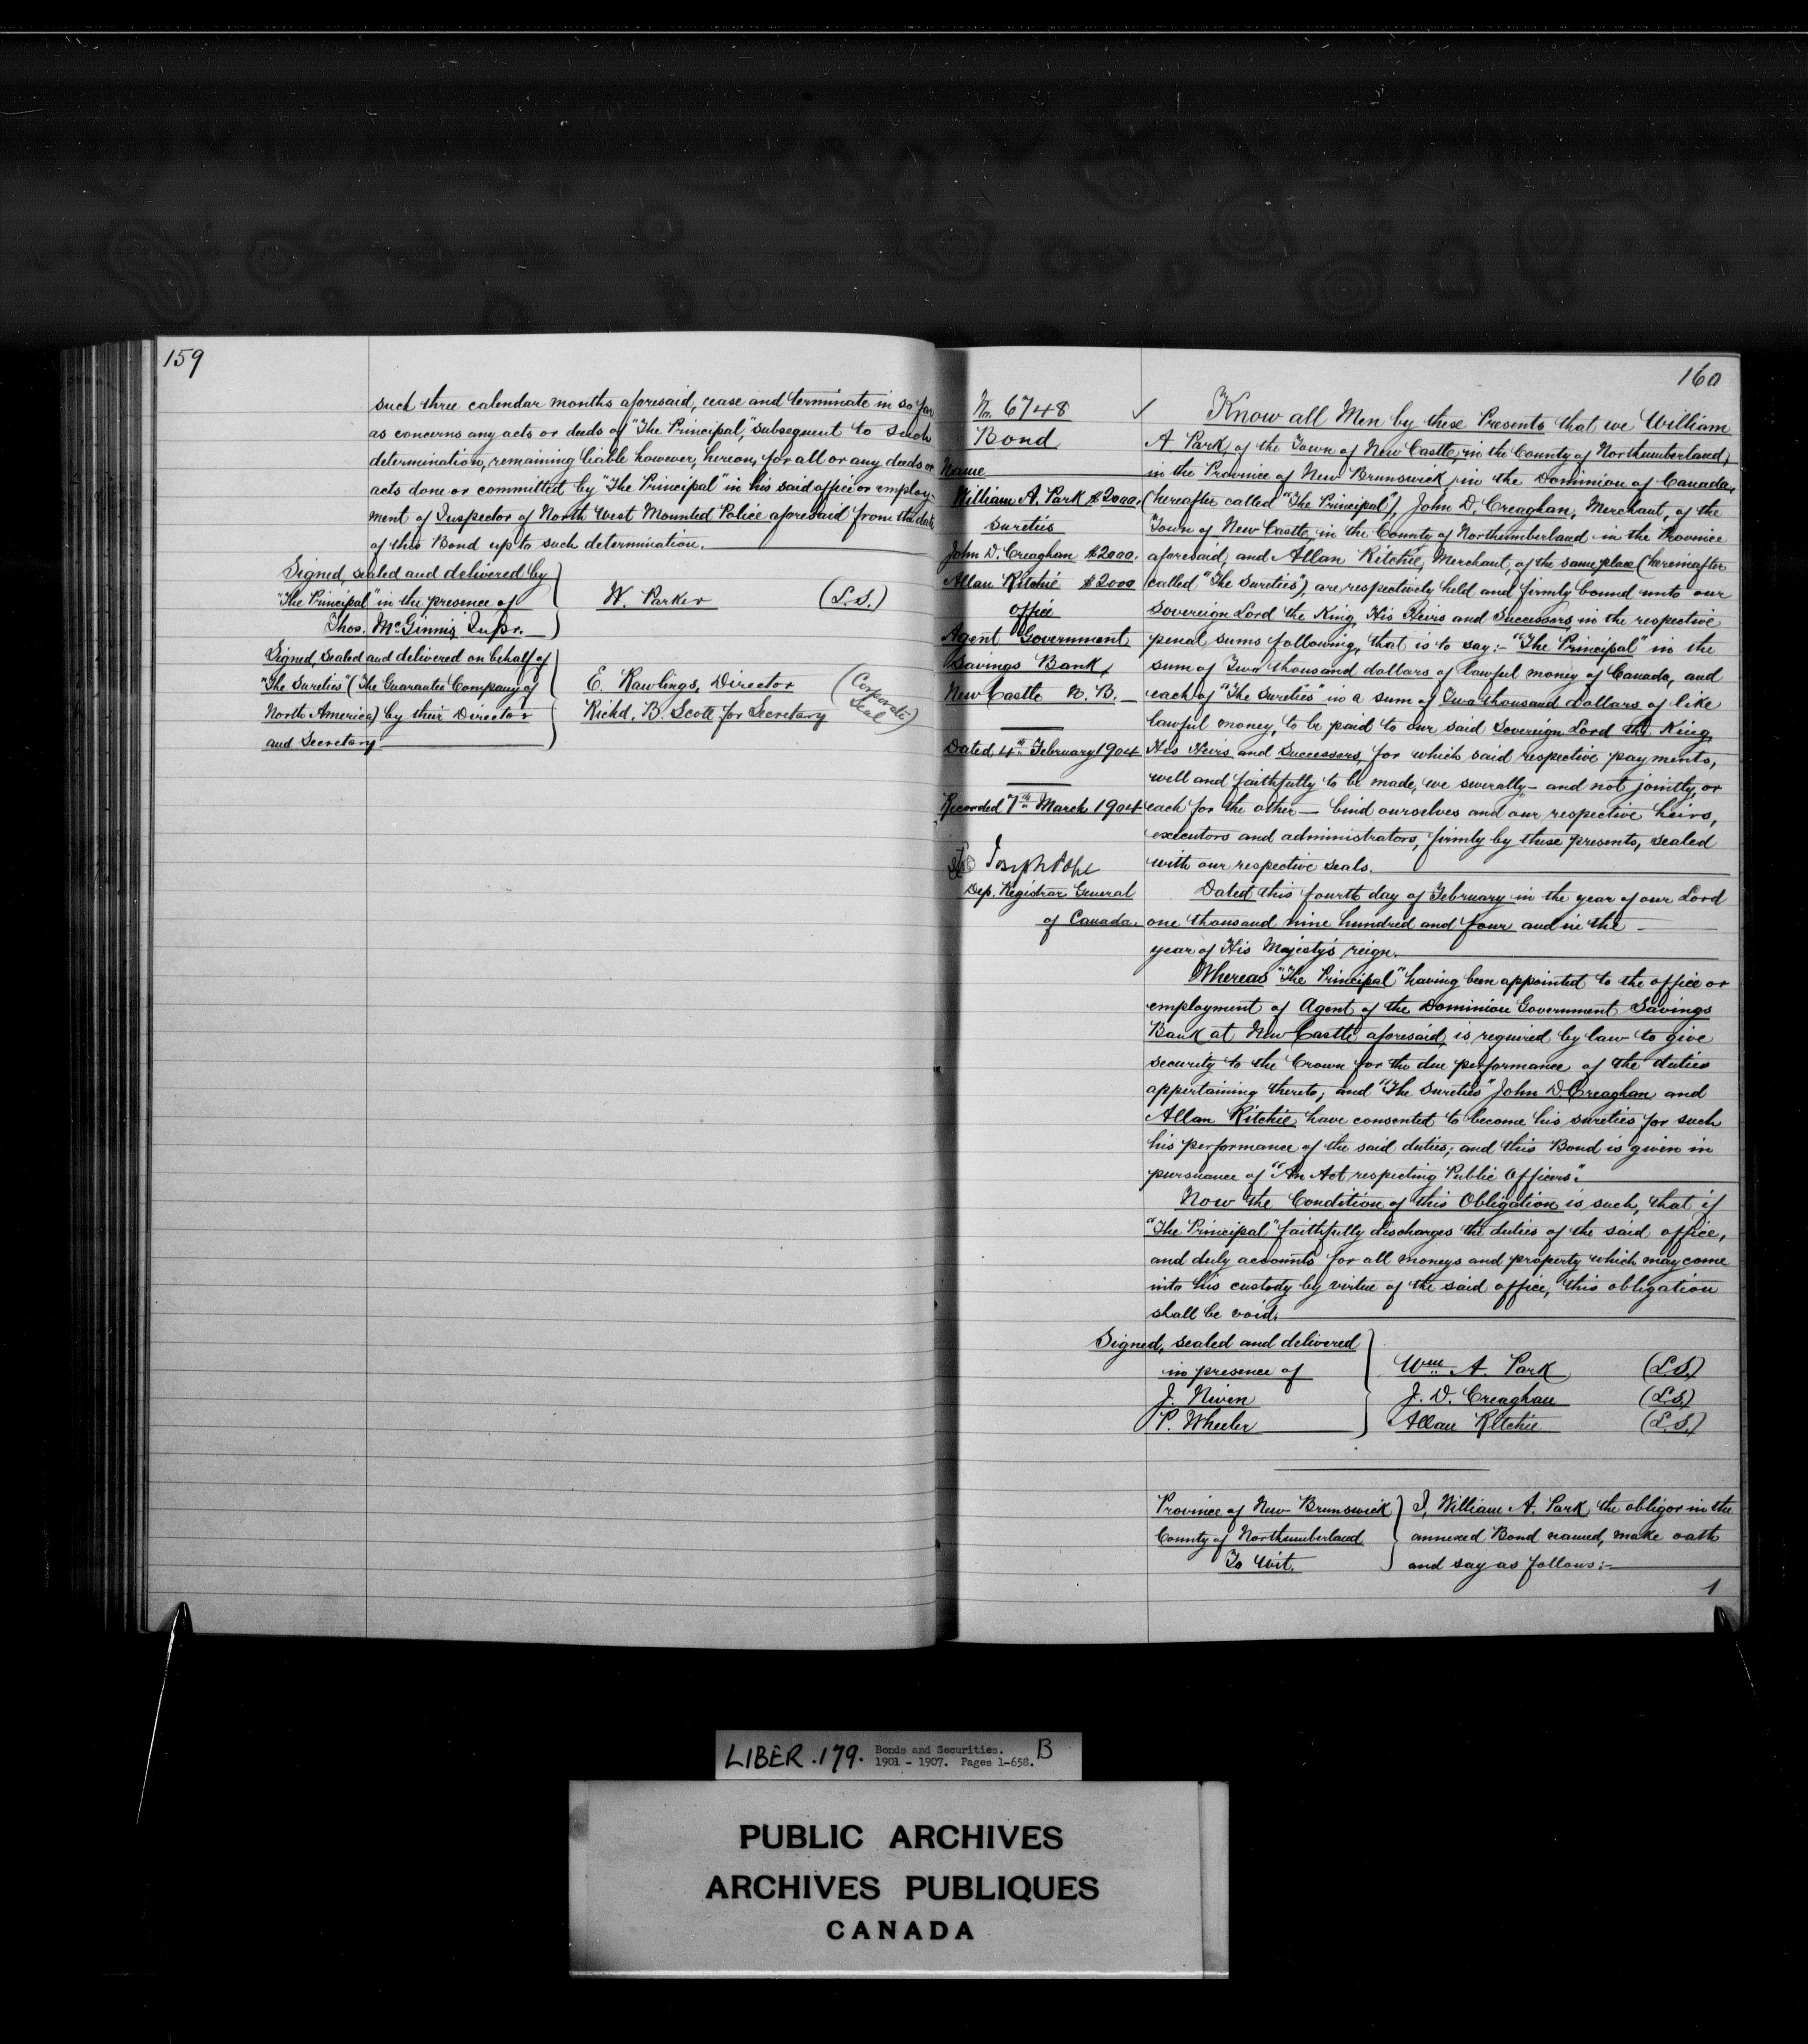 159
such three calendar months aforesaid, cease and terminate in so far
as concerns any acts or deeds of "The Principal," subsequent to such
determination, remaining liable however, hereon, for all or any deeds or
acts done or committed by "The Principal" in his said office or employ-
ment of Inspector of North West Mounted Police aforesaid from the date
of this Bond up to such determination.
Signed, sealed and delivered by
"The Principal" in the presence of
Thos. McGinnis Supr.
W. Parker (L.S.)
Signed, sealed and delivered on behalf of
"The Sureties" (The Guarantee Company of
North America) by their Director
and Secretary
E. Rawlings, Director
Richd. B. Scott for Secretary
(Corporate Seal)
160
No. 6748
Bond
Name
William A. Park $2000.
Sureties
John D. Creaghan $2000.
Allan Ritchie $2000
Office
Agent Government
Savings Bank,
New Castle N. B. —
Dated 4th February 1904
Recorded 7th March 1904
Joseph Pope
Dep. Registrar General
of Canada.
✓ Know all Men by these Presents that we William
A. Park, of the Town of New Castle, in the County of Northumberland,
in the Province of New Brunswick, in the Dominion of Canada,
(hereafter called "The Principal"), John D. Creaghan, Merchant, of the
Town of New Castle, in the County of Northumberland in the Province
aforesaid, and Allan Ritchie, Merchant, of the same place (hereinafter
called "The Sureties"), are respectively held and firmly bound unto our
Sovereign Lord the King, His Heirs and Successors in the respective
penal sums following, that is to say:- "The Principal" in the
sum of Two thousand dollars of lawful money of Canada, and
each of "The Sureties" in a sum of Two thousand dollars of like
lawful money, to be paid to our said Sovereign Lord the King,
His Heirs and Successors, for which said respective payments,
well and faithfully to be made, we severally — and not jointly, or
each for the other — bind ourselves and our respective heirs,
executors and administrators, firmly by these presents, sealed
with our respective seals.
Dated this fourth day of February in the year of our Lord
one thousand nine hundred and four and in the —
year of His Majesty's reign.
Whereas "The Principal" having been appointed to the office or
employment of Agent of the Dominion Government Savings
Bank at New Castle aforesaid, is required by law to give
security to the Crown for the due performance of the duties
appertaining thereto; and "The Sureties" John D. Creaghan and
Allan Ritchie have consented to become his sureties for such
his performance of the said duties; and this Bond is given in
pursuance of "An Act respecting Public Officers".
Now the Condition of this Obligation is such, that if
"The Principal" faithfully discharges the duties of the said office,
and duly accounts for all moneys and property which may come
into his custody by virtue of the said office, this obligation
shall be void.
Signed, sealed and delivered
in presence of
J. Niven
P. Wheeler
Wm A. Park (L.S.)
J. D. Creaghan (L.S.)
Allan Ritchie (L.S.)
Province of New Brunswick
County of Northumberland
To Wit.
I, William A. Park the obligor in the
annexed Bond named, make oath
and say as follows:-
1
LIBER .179. Bonds and Securities. B
1901 - 1907. Pages 1-658.
PUBLIC ARCHIVES
ARCHIVES PUBLIQUES
CANADA